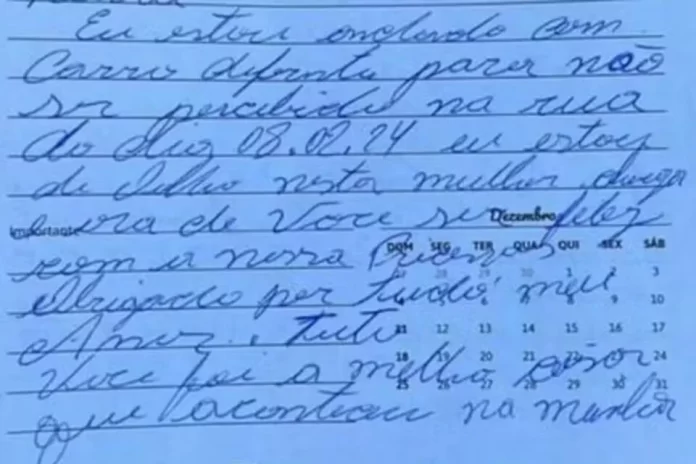 Eu estou andando com
Carro diferente para não
ser percebido na rua
do dia 08.02.24 eu estou
de olho nesta mulher
Importante de Você ser Dezembro feliz
DOM SEG TER QUA QUI SEX SÁB
com a nossa Princesa
1 2 3
Obrigado por tudo meu
9 10
Amor. tuto
11 12 13 14 15 16 17
Você foi a melhor coisa
18 19 20 21 24
25 26 27 28 29 30 31
que aconteceu na minha